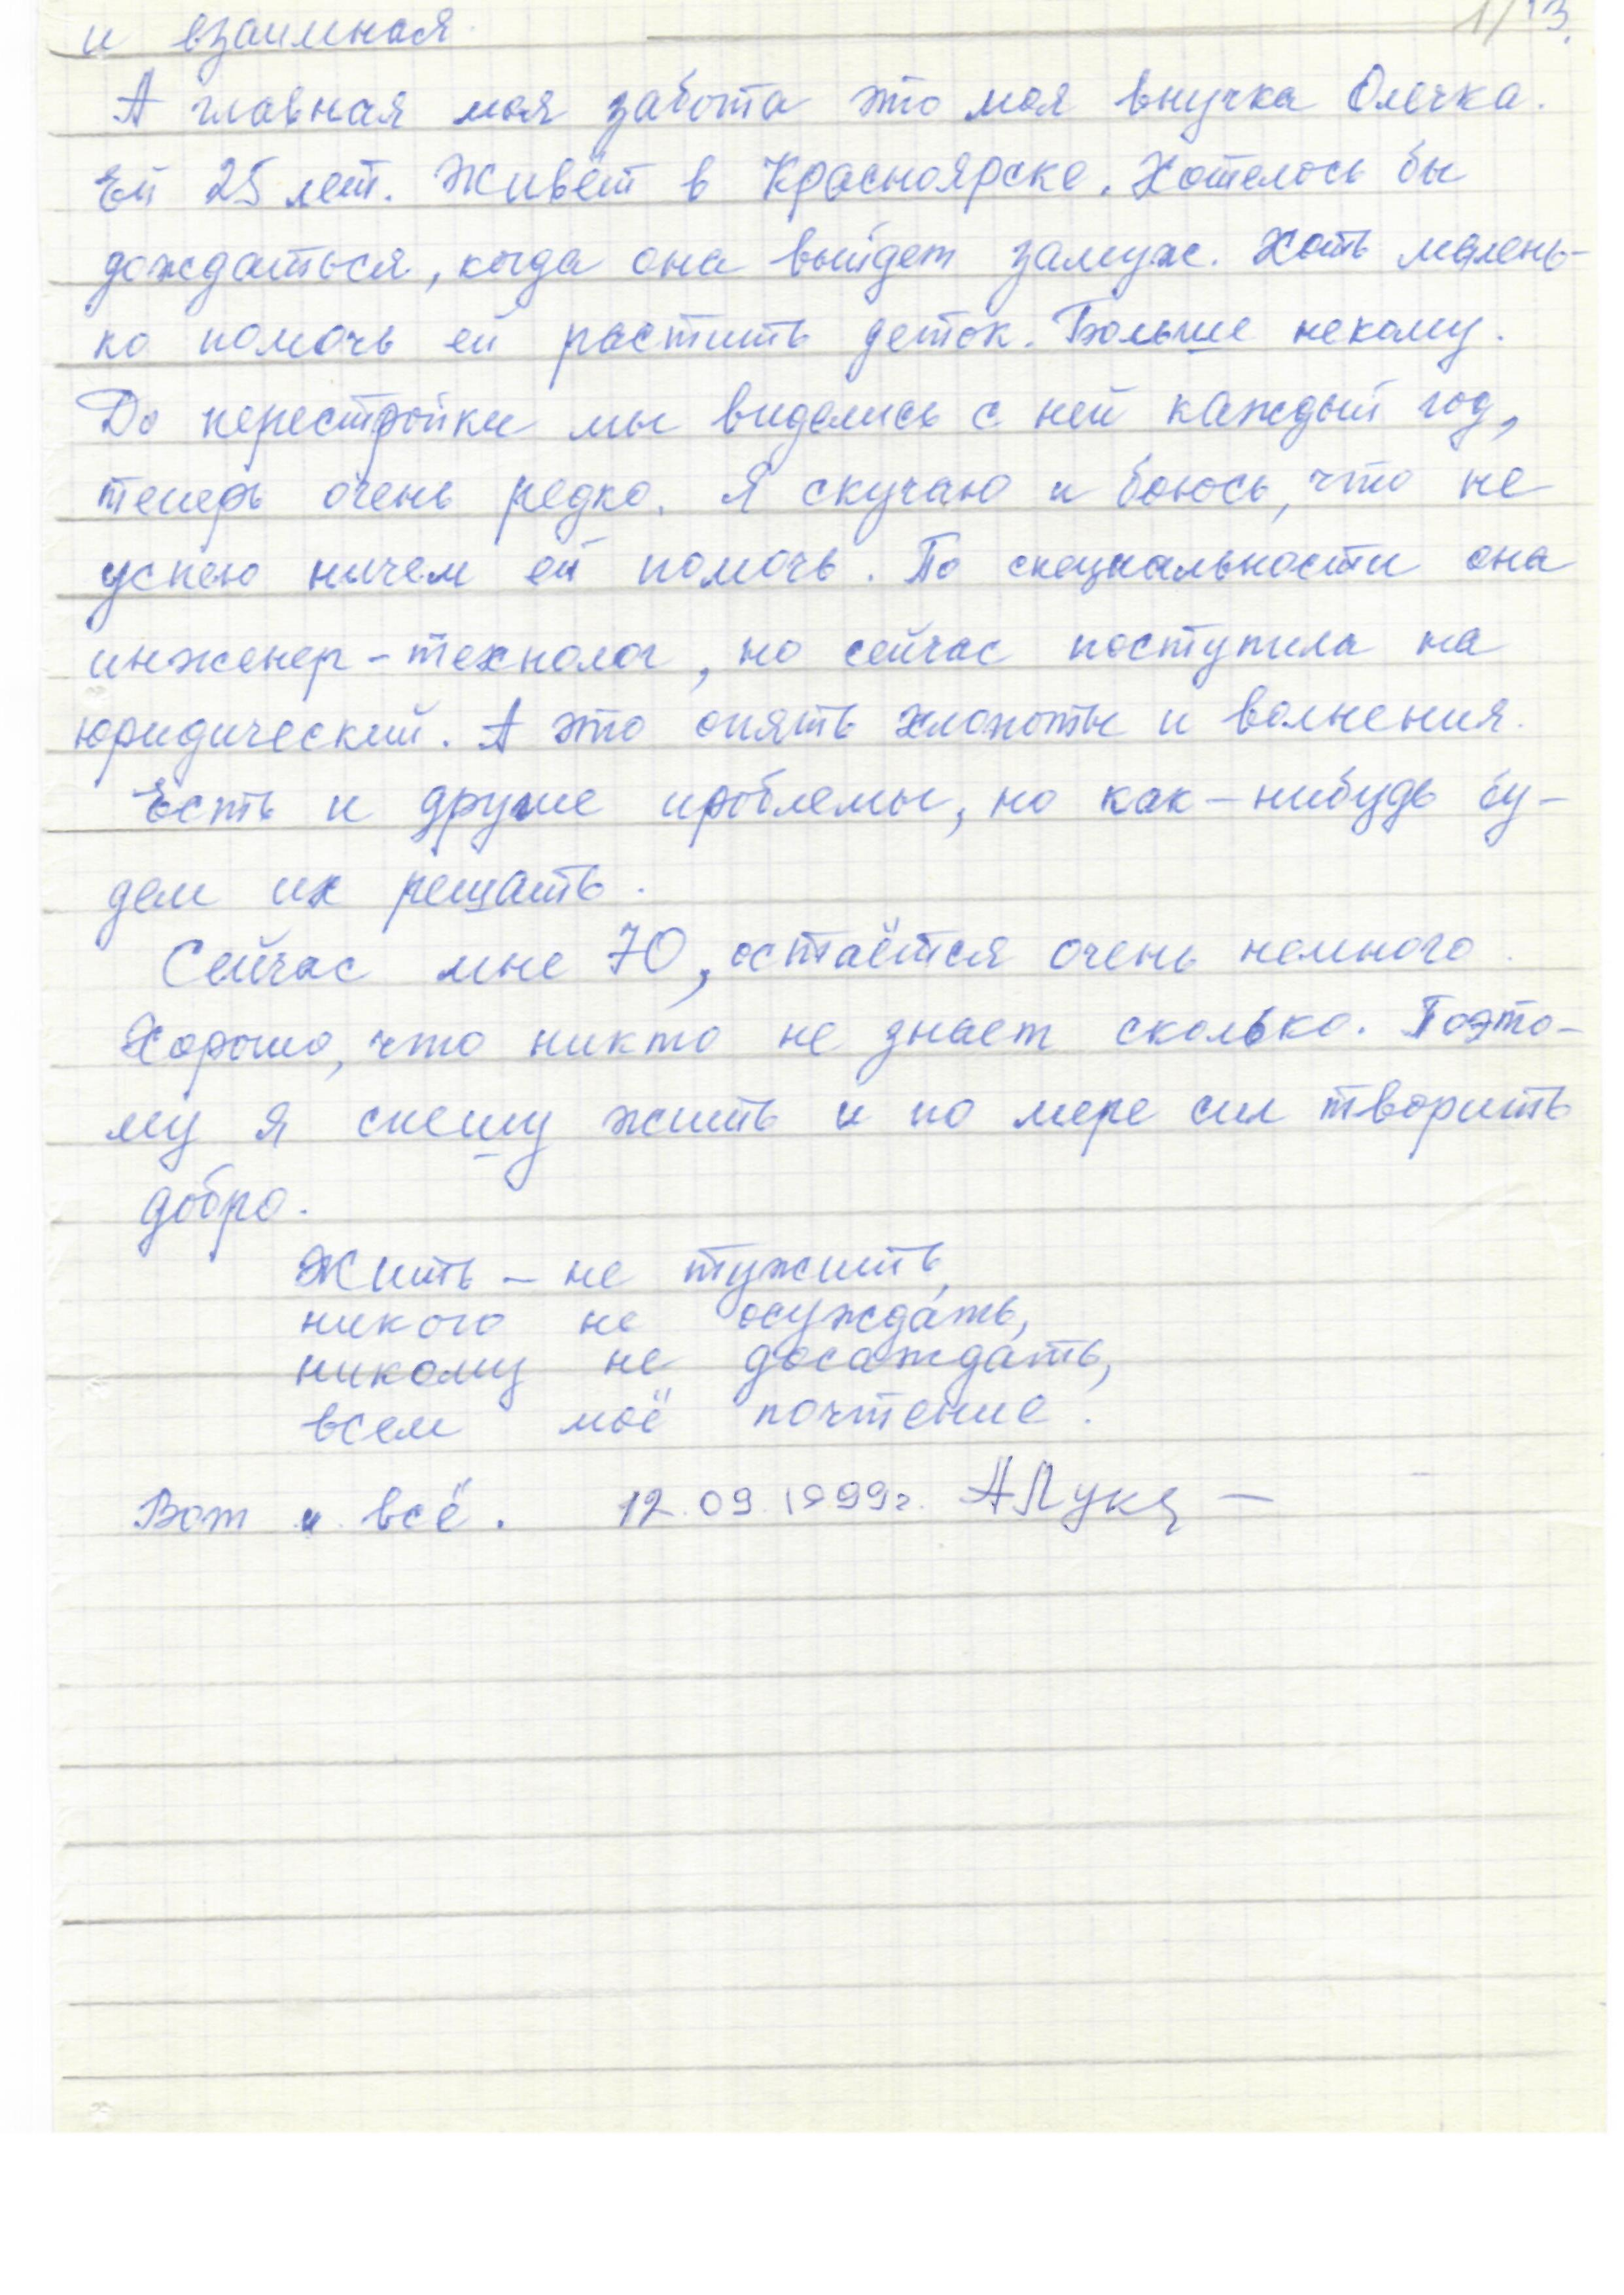 и взаимная.
А главная моя забота это моя внучка Олечка.
Ей 25 лет. Живёт в Красноярске. Хотелось бы
дождаться, когда она выйдет замуж. Хоть малень-
ко помочь ей растить деток. Больше некому.
До перестройки мы виделись с ней каждый год,
теперь очень редко. Я скучаю и боюсь, что не
успею ничем ей помочь. По специальности она
инженер-технолог, но сейчас поступила на
юридический. А это опять хлопоты и волнения.
Есть и другие проблемы, но как-нибудь бу-
дем их решать.
Сейчас мне 70, остаётся очень немного.
Хорошо, что никто не знает сколько. Поэто-
му я спешу жить и по мере сил творить
добро.
Жить – не тужить,
никого не осуждать,
никому не досаждать,
всем моё почтение.
Вот и всё. 12.09.1999г.